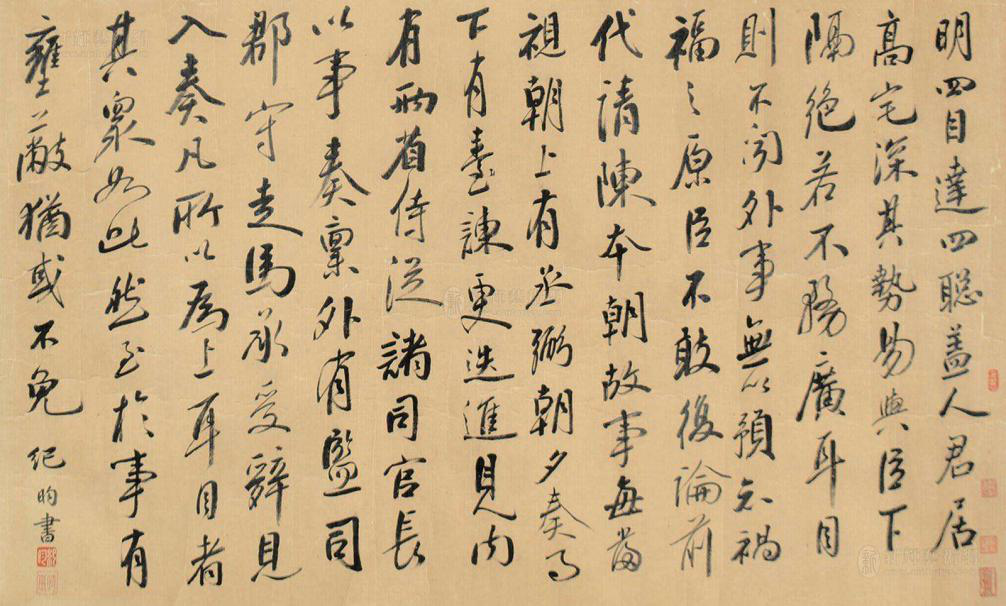 明四目達四聰蓋人君居
高宅深其勢易與臣下
隔絶若不務廣耳目
則不聞外事無以預知禍
福之原臣不敢復論前
代請陳本朝故事每當
視朝上有丞弼朝夕奏事
下有臺諫更迭進見內
有兩省侍從諸司官長
以事奏稟外有監司
郡守走馬承受辭見
入奏凡所以為上耳目者
其眾如此然至於事有
壅蔽猶或不免 紀昀書